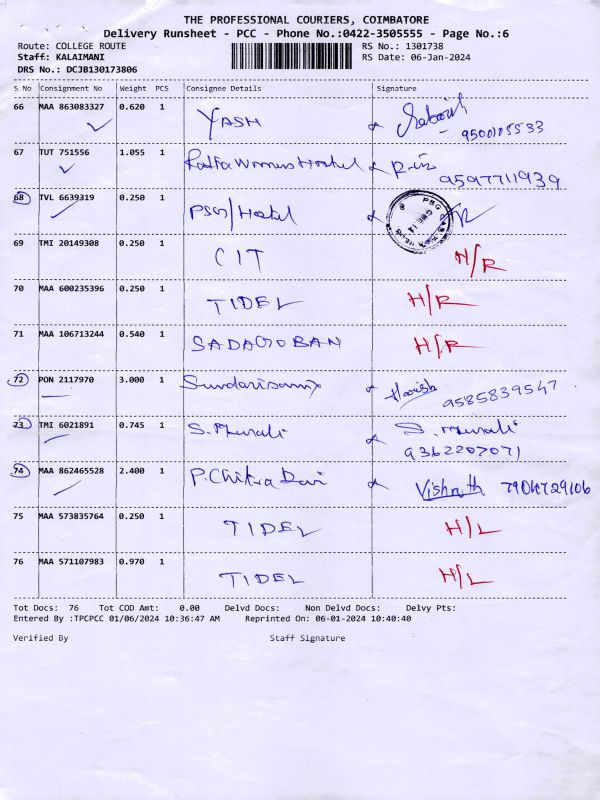 THE PROFESSIONAL COURIERS, COIMBATORE
Delivery Runsheet - PCC - Phone No.:0422-3505555 - Page No.:6
Route: COLLEGE ROUTE RS No.: 1301738
Staff: KALAIMANI RS Date: 06-Jan-2024
DRS No.: DCJB130173806
S No Consignment No Weight PCS Consignee Details Signature
66 MAA 863083327 0.620 1 YASH
67 TUT 751556 1.055 1 9597711939
68 TVL 6639319 0.250 1 PSG/Hostel
69 TMI 20149308 0.250 1 CIT H/R
70 MAA 600235396 0.250 1 TIDEL H/R
71 MAA 106713244 0.540 1 SADAGOBAN H/R
72 PON 2117970 3.000 1 Sundarisamy Harish 9585839547
73 TMI 6021891 0.745 1 S. Murali S. Murali
9362207071
74 MAA 862465528 2.400 1 P. Chitra Devi 7904729106
75 MAA 573835764 0.250 1 TIDEL H/L
76 MAA 571107983 0.970 1 TIDEL H/L
Tot Docs: 76 Tot COD Amt: 0.00 Delvd Docs: Non Delvd Docs: Delvy Pts:
Entered By :TPCPCC 01/06/2024 10:36:47 AM Reprinted On: 06-01-2024 10:40:40
Verified By Staff Signature